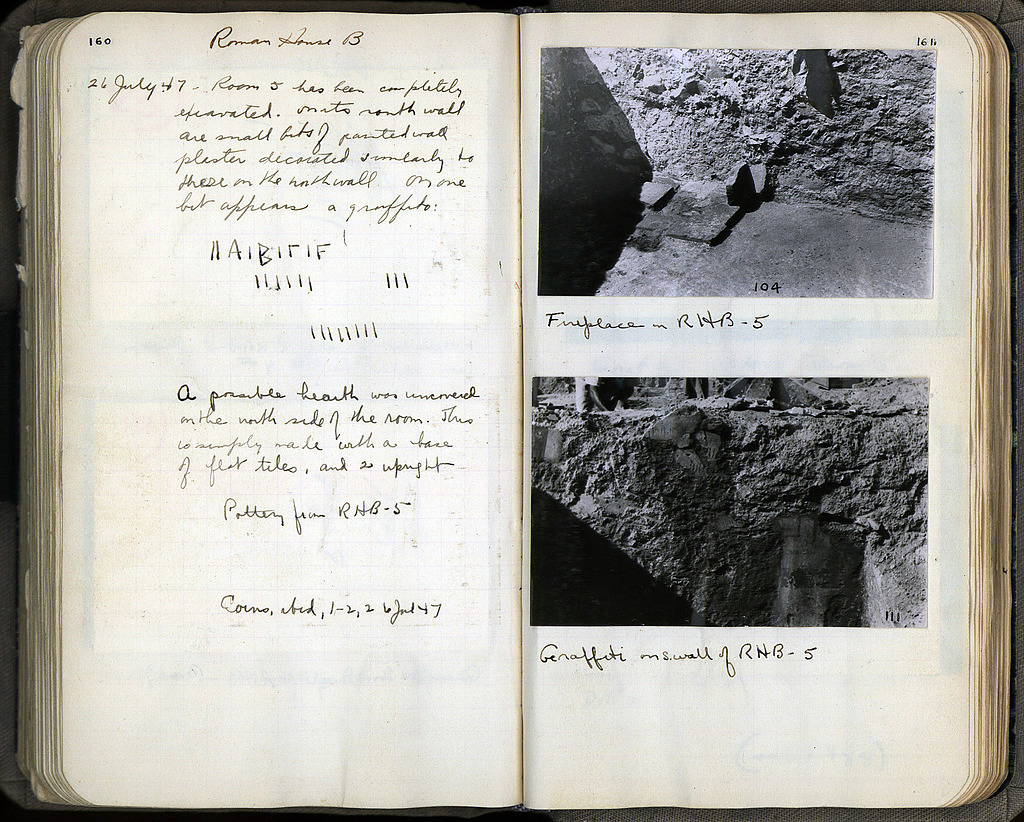 160
Roman House B
26 July 47 - Room 5 has been completely
excavated. On its south wall
are small bits of painted wall
plaster decorated similarly to
those on the north wall On one
bit appears a graffito:
IIAIBIΓIF
IIIIII III
IIIIIIII
A possible hearth was uncovered
on the north side of the room. This
is simply made with a base
of flat tiles, and 2 upright
Pottery from RHB-5
Coins, ibid, 1-2, 26 Jul 47
161
104
Fireplace in RHB-5
111
Graffiti on s. wall of RHB-5